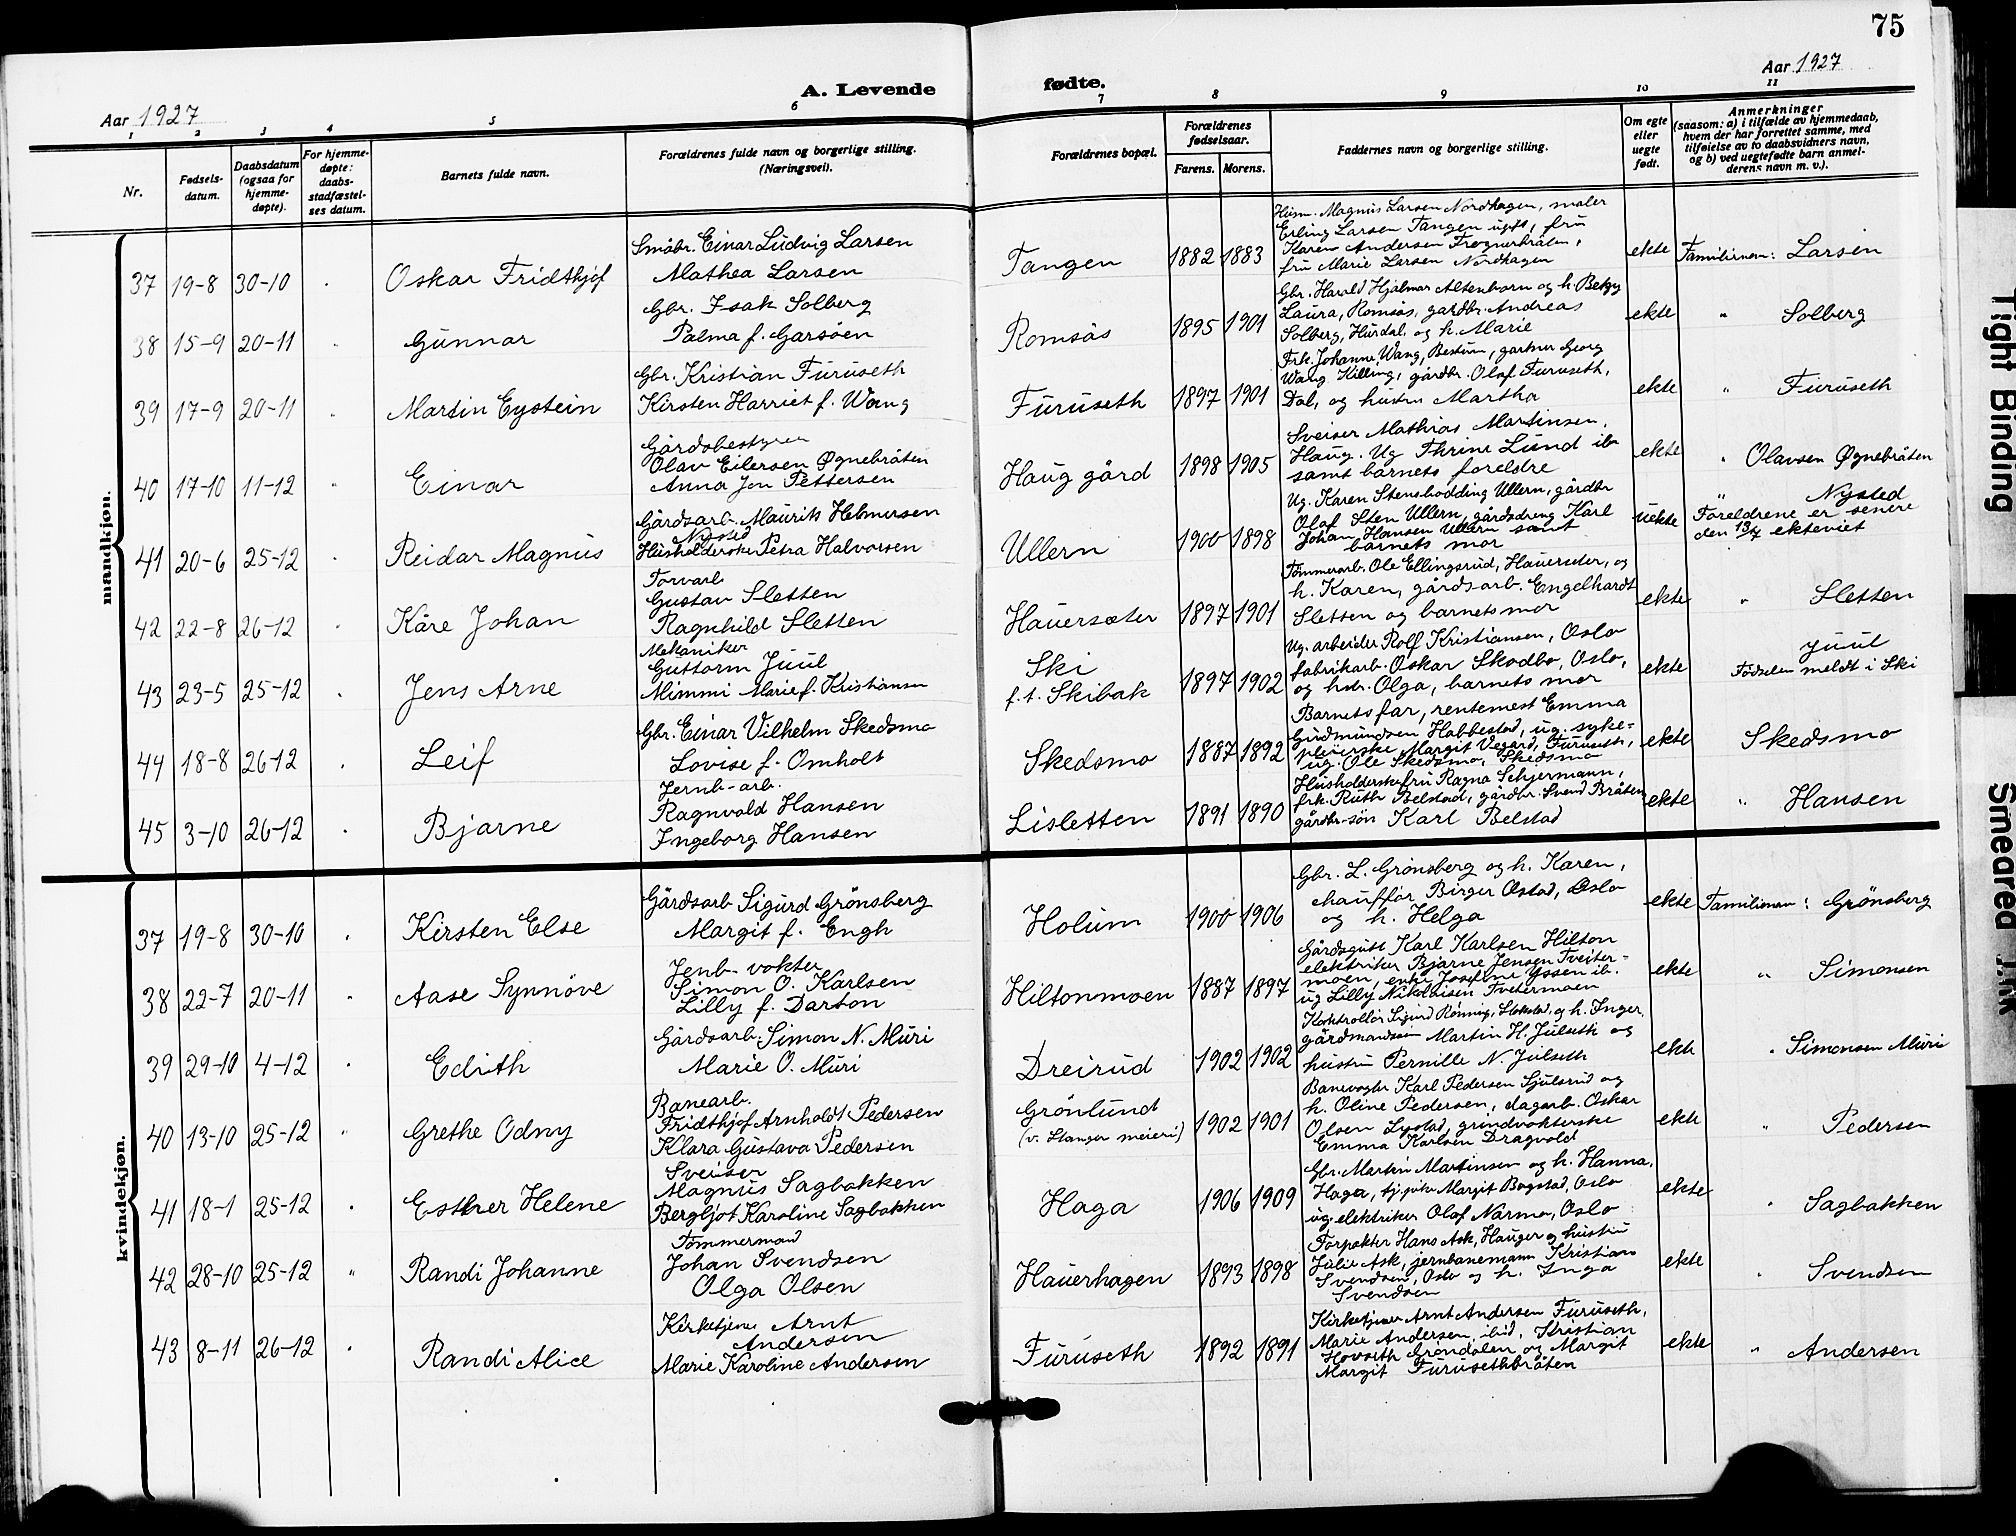 75
Aar 1927
A. Levende
fødte.
Aar 1927
1 2 3 4 5 6 7 8 9 10 11
Nr.
Fødsels-
datum.
Daabsdatum
(ogsaa for
hjemme-
døpte).
For hjemme-
døpte:
daabs-
stadfæstel-
ses datum.
Barnets fulde navn.
Forældrenes fulde navn og borgerlige stilling.
(Næringsvei).
Forældrenes bopæl.
Forældrenes
fødselsaar.
Farens. Morens.
Faddernes navn og borgerlige stilling.
Om egte
eller
uegte
født.
Anmerkninger
(saasom: a) i tilfælde av hjemmedaab,
hvem der har forrettet samme, med
tilføielse av to daabsvidners navn,
og b) ved uegtefødte barn anmel-
derens navn m. v.).
mandkjøn.
37 19-8 30-10 Oskar Fridthjof
Småbr. Einar Ludvig Larsen
Mathea Larsen
Tangen 1882 1883
Husm. Magnus Larsen Nordhagen, maler
Erling Larsen Tangen ugift, fru
Karen Andersen Frognerbråten,
fru Marie Larsen Nordhagen
ekte Familienavn: Larsen
38 15-9 20-11 Gunnar
Gbr. Isak Solberg
Palma f. Garsöen
Romsås 1895 1901
Gbr. Harald Hjalmar Altenborn og h. Betzy
Laura, Romsås, gardbr. Andreas
Solberg, Hurdal. og h. Marie
ekte " Solberg
39 17-9 20-11 Martin Eystein
Gbr. Kristian Furuseth
Kirsten Harriet f. Wang
Furuseth 1897 1901
Frk. Johanne Wang, Bestum, gartner Georg
Wang Killing, gårdbr. Olaf Furuseth,
Dal, og hustru Martha
ekte " Furuseth
40 17-10 11-12 Einar
Gårdsbestyrer
Olav Eilersen Øgnebråten
Anna Jen Pettersen
Haug gård 1898 1905
Sveiser Mathias Martinsen,
Haug. Ug Thrine Lund ib
samt barnets foreldre
ekte " Olavsen Øgnebråten
41 20-6 25-12 Reidar Magnus
Gårdsarb. Maurits Helmersen
Nysted
Husholderske Petra Halvorsen
Ullern 1900 1898
Ug. Karen Stenshodding Ullern, gårdbr
Olaf Sten Ullern, gårdsdreng Karl
Johan Hansen Ullern samt
barnets mor
uekte " Nysted
Foreldrene er senere
den 13/7 ekteviet
42 22-8 26-12 Kåre Johan
Torvarb
Gustav Sletten
Ragnhild Sletten
Hauersæter 1897 1901
Tømmerarb. Ole Ellingsrud, Hauerseter, og
h. Karen, gårdsarb. Engelhardt
Sletten og barnets mor
ekte " Sletten
43 23-5 25-12 Jens Arne
Mekaniker
Guttorm Juul
Mimmi Marie f. Kristiansen
Ski
f. t. Skibak 1897 1902
Ug. arbeider Rolf Kristiansen, Oslo
fabrikarb. Oskar Skodbo, Oslo,
og hstr. Olga, barnets mor
ekte Juul
Fødselen meldt i Ski
44 18-8 26-12 Leif
Gbr. Einar Vilhelm Skedsmo
Lovise f. Omholt
Skedsmo 1887 1892
Barnets far, rentemest Emma
Gudmundsen Habbestad, ug. syke-
pleierske Margit Vegard, Furuseth,
ug. Ole Skedsmo, Skedsmo
ekte Skedsmo
45 3-10 26-12 Bjarne
Jernb-arb.
Ragnvald Hansen
Ingeborg Hansen
Lisletten 1891 1890
Husholderske fru Ragna Schjermann,
frk. Ruth Belstad, gårdbr. Svend Bråten
gårdbr-søn Karl Belstad
ekte " Hansen
kvindekjøn.
37 19-8 30-10 Kirsten Else
Gårdsarb Sigurd Grönsberg
Margit f. Engh
Holum 1900 1906
Gbr. L. Grönsberg og h. Karen,
chauffør Birger Østad, Oslo
og h. Helga
ekte Familienavn: Grønsberg
38 22-7 20-11 Aase Synnöve
Jenb-vokter
Simon O. Karlsen
Lilly f. Darton
Hiltonmoen 1887 1897
Gårdsgutt Karl Karlsen Hilton
elektriker Bjarne Jensen Tveiter-
moen, enke Josefine Yssen ib.
ug Lilly Nikolaisen Tvetermoen
ekte " Simonsen
39 29-10 4-12 Edith
Gårdsarb. Simon N. Muri
Marie O. Muri
Dreirud 1902 1902
Kontrollør Sigurd Rönning, og h. Inger,
gårdmandsøn Martin H. Julseth og
hustru Pernille N. Julseth
ekte " Simonsen Muri
40 13-10 25-12 Grethe Odny
Banearb.
Fridthjof Arnholdt Pedersen
Klara Gustava Pedersen
Grönlund
(v. Stangor meieri) 1902 1901
Banevogter Karl Pedersen Sjulsrud og
h. Oline Pedersen, dagarb. Oskar
Olsen Lystad, grindvokterske
Emma Karlsen Dragvold
ekte " Pedersen
41 18-1 25-12 Esther Helene
Sveiser
Magnus Sagbakken
Bergljot Karoline Sagbakken
Haga 1906 1909
Gbr. Martin Martinsen og h. Hanna,
Haga, tj. pike Margit Bogstad, Oslo
ug elektriker Olaf Narmo, Oslo
ekte " Sagbakken
42 28-10 25-12 " Randi Johanne
Tømmermand
Johan Svendsen
Olga Olsen
Hauerhagen 1893 1898
Forpakter Hans Ask, Hauger og hustru
Julie Ask, jernbanemann Kristian
Svendsen, Oslo og h. Inga
Svendsen
ekte " Svendsen
43 8-11 26-12 Randi Alice
Kirketjener Arnt
Andersen
Marie Karoline Andersen
Furuseth 1892 1891
Kirketjener Arnt Andersen Furuseth,
Marie Andersen, ibid, Kristian
Hovseth Grøndalen og Margit
Margit Furusethbråten
ekte " Andersen
Tight Binding
Smeared Ink